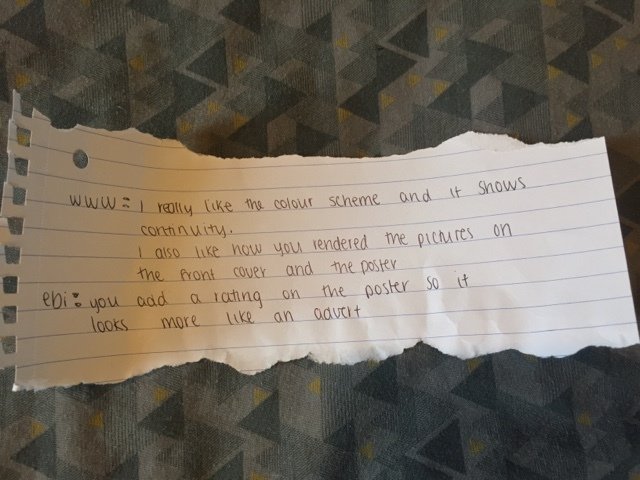 www: I really like the colour scheme and it shows
continuity.
I also like how you rendered the pictures on
the front cover and the poster
ebi: you add a rating on the poster so it
looks more like an advert